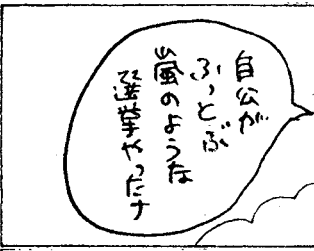 自公が
ふっとぶ
嵐のような
選挙やったナ